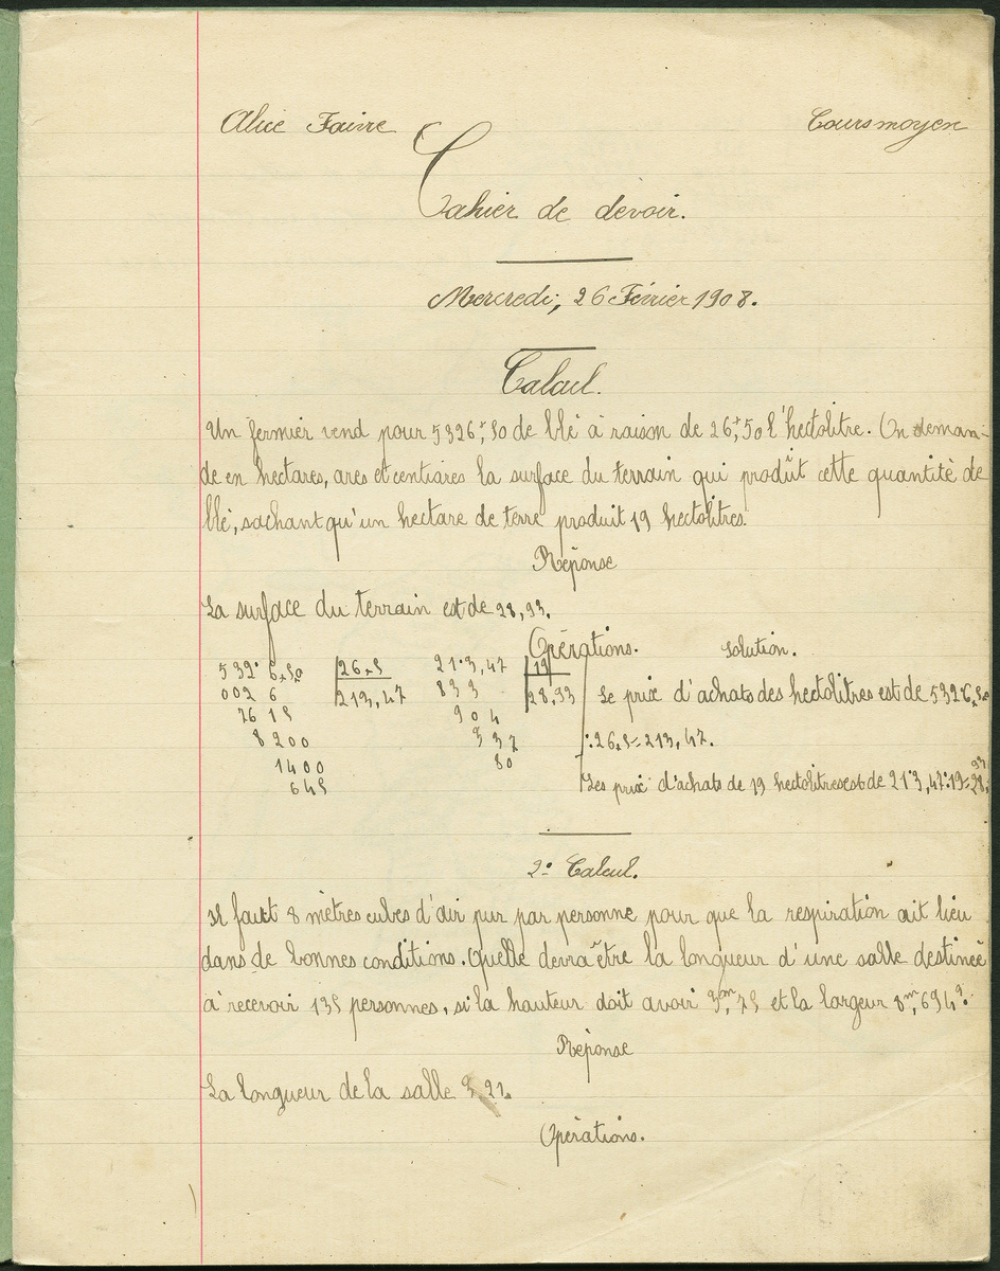 Alice Faivre
Cours moyen
Cahier de devoir.
Mercredi, 26 Février 1908.
Calcul.
Un fermier vend pour 5326f,50 de blé à raison de 26f,50 l'hectolitre. On deman-
de en hectares, ares et centiares la surface du terrain qui produit cette quantité de
blé, sachant qu'un hectare de terre produit 19 hectolitres.
Réponse
La surface du terrain est de 28,93.
Opérations. Solution.
532 6,50 26,5 213,47 19
002 6 213,47 833 28,93
261 5 904
8 200 337
1400 80
645
Le prix d'achats des hectolitres est de 5326,50
: 26,5 = 213,47.
Les prix d'achats de 19 hectolitres est de 213,47:19=28,93
2º Calcul.
Il faut 8 mètres cubes d'air pur par personne pour que la respiration ait lieu
dans de bonnes conditions. Quelle devra être la longueur d'une salle destineé
à recevoir 135 personnes, si la hauteur doit avoir 3m,75 et la largeur 8m,694?
Réponse
La longueur de la salle 3,21.
Opérations.